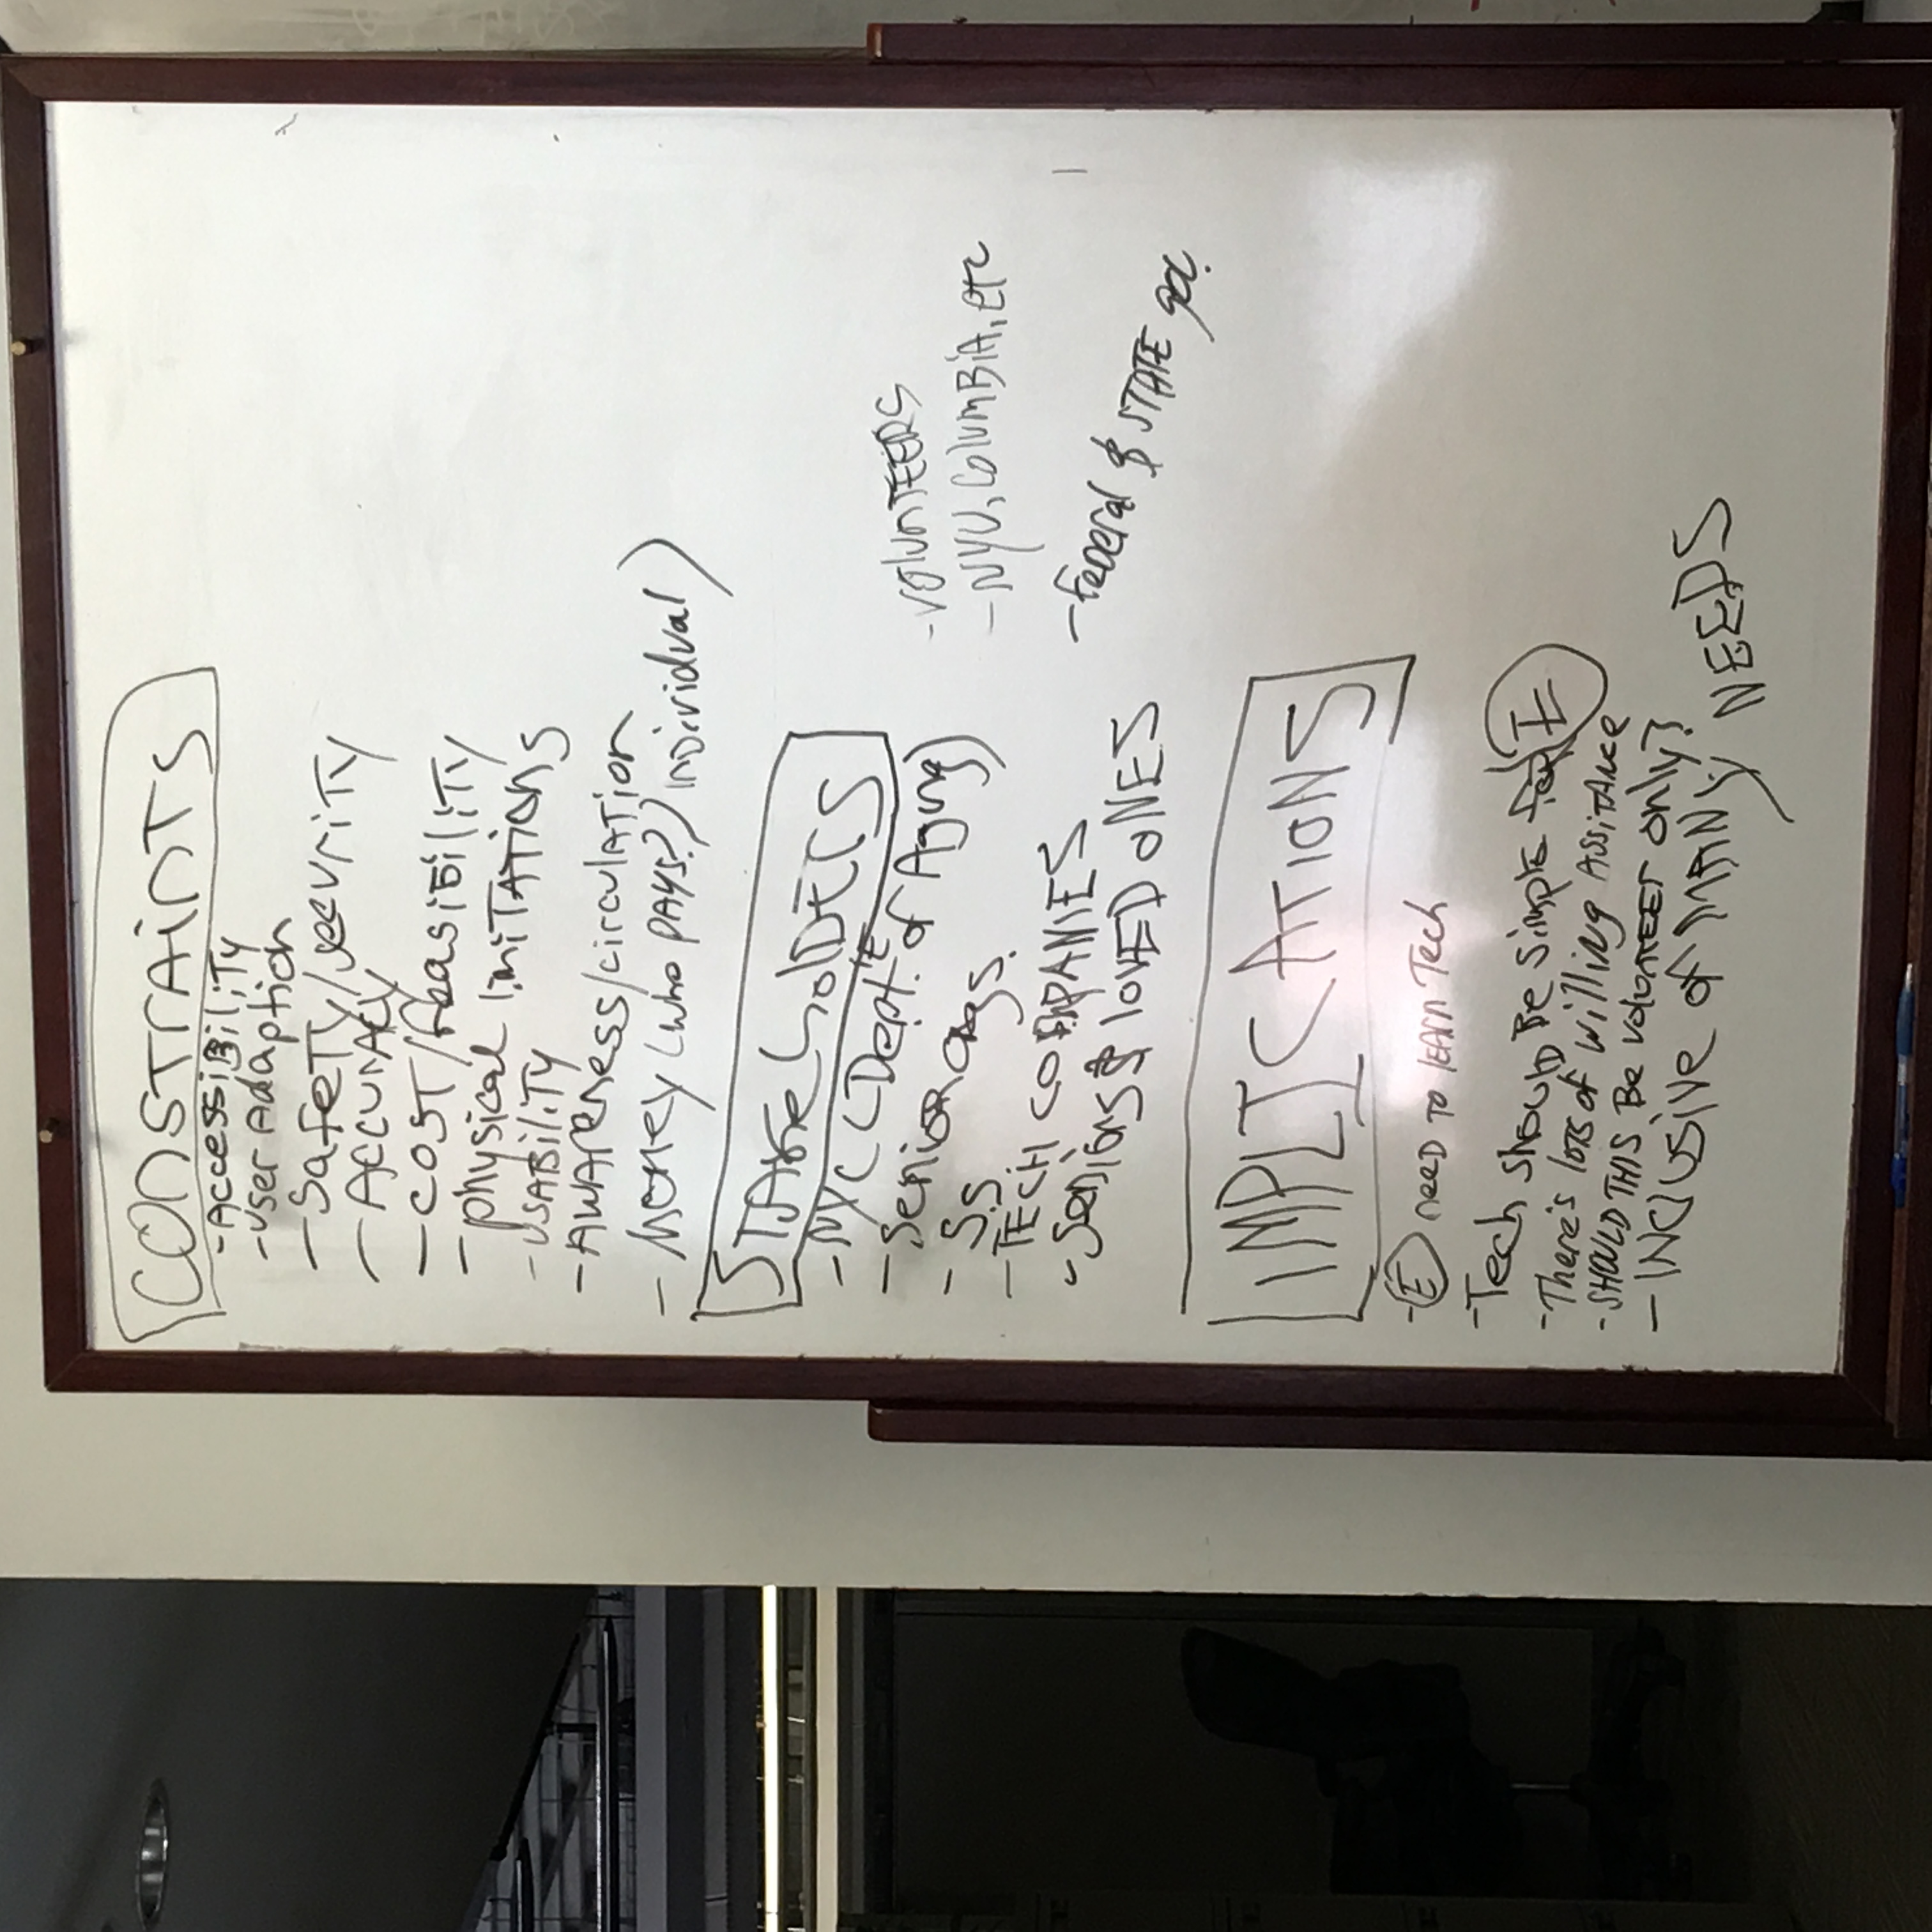 CONSTRAINTS
- Accessibility
- User Adaption
- Safety/security
- Accuracy
- COST/feasibility
- physical limitations
- USABility
- AWAreness/circulation
- Money (who pays?) individual)
STAKEholDERS
- NYC (Dept. of Aging)
- Senior orgs.
- S.S.
- TECH COMPANIES
- Seniors & lOVED ONES
- VolunTEERS
- NYU, ColumBiA, etc
- FeDeral & STATE
IMPLICATIONS
- E need to learn Tech
- Tech should Be simple for E
- There's lots of willing Assitance
- SHOULD THIS Be Volunteer only?
- INClusive of MANy NEEDS